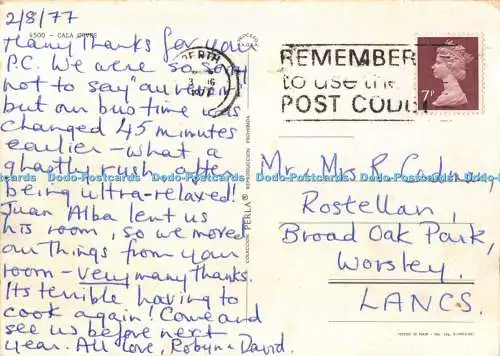 2/8/77
4500 - CALA
Many thanks for your
P.C. We were so sorry
not to say "au revoir"
but our bus time was
changed 45 minutes
earlier - what a
ghastly rush after
being ultra-relaxed!
Juan Alba lent us
his room, so we moved
our things from your
room - very many thanks.
Its terrible having to
cook again! Come and
see us before next
year. All love, Robyn & David.
PERTH
1977
REMEMBER
to use the
POST CODE
7P
COLECCION PERLA® REPRODUCCION PROHIBIDA
Mr. Mrs R.
Rostellan,
Broad Oak Park,
Worsley.
LANCS.
Dodo-Postcards Dodo-Postcards Dodo-Postcards Dodo-Postcards